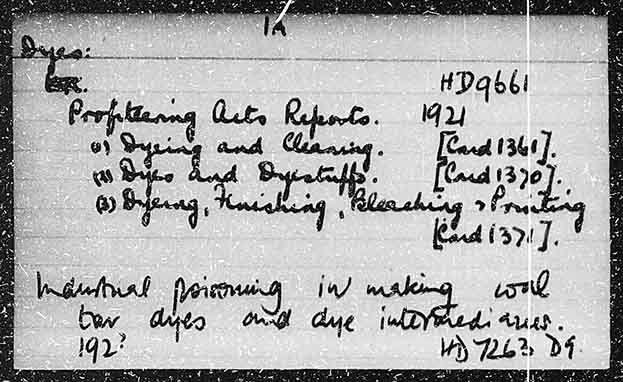 1A
Dyes:
HD9661
Profiteering Acts Reports. 1921
(1) Dyeing and Cleaning. [Card 1361].
(2) Dyes and Dyestuffs. [Card 1370].
(3) Dyeing, Finishing, Bleaching & Printing
[Card 1371].
Industrial poisoning in making coal
tar dyes and dye intermediaries.
192? HD7263 D9